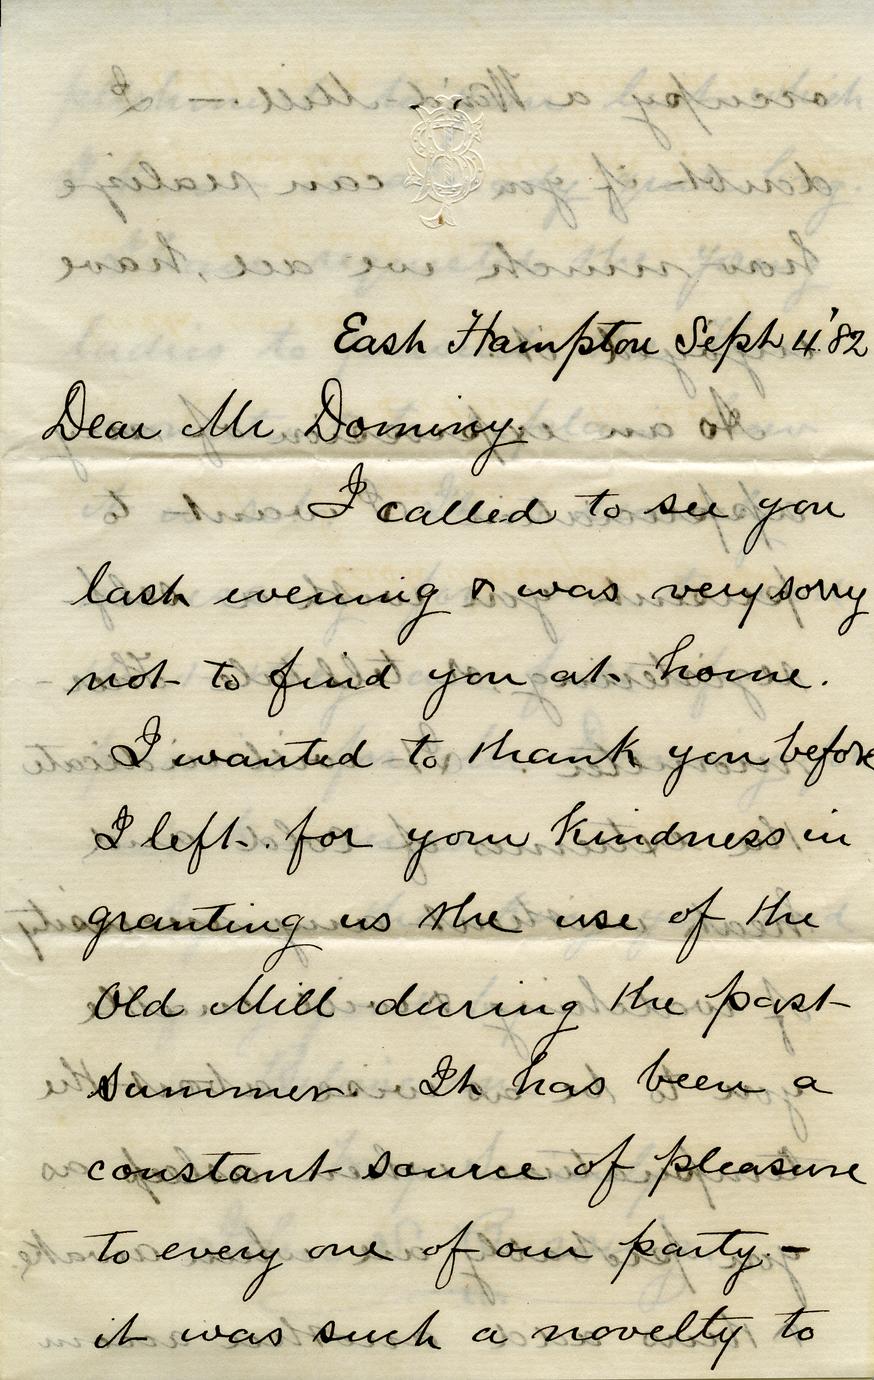 East Hampton Sept 4 '82
Dear Mr Dominy.
I called to see you
last evening & was very sorry
not to find you at home.
I wanted to thank you before
I left. for your kindness in
granting us the use of the
Old Mill during the past
summer. It has been a
constant source of pleasure
to every one of our party. –
it was such a novelty to